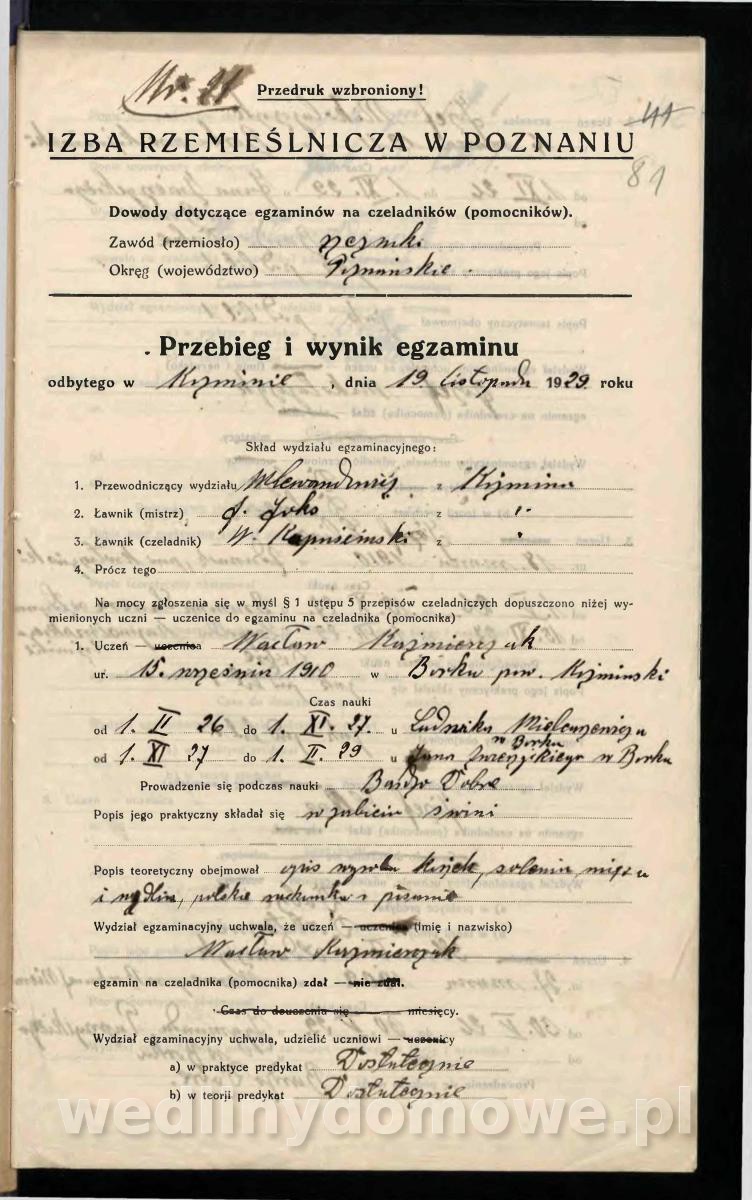 Nr. 21
Przedruk wzbroniony!
IZBA RZEMIEŚLNICZA W POZNANIU
81
Dowody dotyczące egzaminów na czeladników (pomocników).
Zawód (rzemiosło) rzeźnicki
Okręg (województwo) Poznańskie
Przebieg i wynik egzaminu
odbytego w Koźminie, dnia 19 listopada 1929 roku
Skład wydziału egzaminacyjnego:
1. Przewodniczący wydziału z Koźmina
2. Ławnik (mistrz) J. z "
3. Ławnik (czeladnik) W. z "
4. Prócz tego
Na mocy zgłoszenia się w myśl § 1 ustępu 5 przepisów czeladniczych dopuszczono niżej wy-
mienionych uczni — uczenice do egzaminu na czeladnika (pomocnika)
1. Uczeń — uczenica Wacław Kaźmierczak
ur. 15. września 1910 w Borku pow. Koźminski
Czas nauki
od 1. II 26 do 1. XI. 27. u Ludwika
w Borku
od 1. XI 27 do 1. II. 29 u Jana w Borku
Prowadzenie się podczas nauki Bardzo Dobre
Popis jego praktyczny składał się w zabiciu świni
Popis teoretyczny obejmował opis wyrobu kiszek, solenia mięsa
i wędlin, polskie rachunki i pisanie
Wydział egzaminacyjny uchwala, że uczeń — uczenica (imię i nazwisko)
Wacław Kaźmierczak
egzamin na czeladnika (pomocnika) zdał — nie zdał.
Czas do douczenia się miesięcy.
Wydział egzaminacyjny uchwala, udzielić uczniowi — uczenicy
a) w praktyce predykat Dostatecznie
b) w teorji predykat Dostatecznie
wedlinydomowe.pl